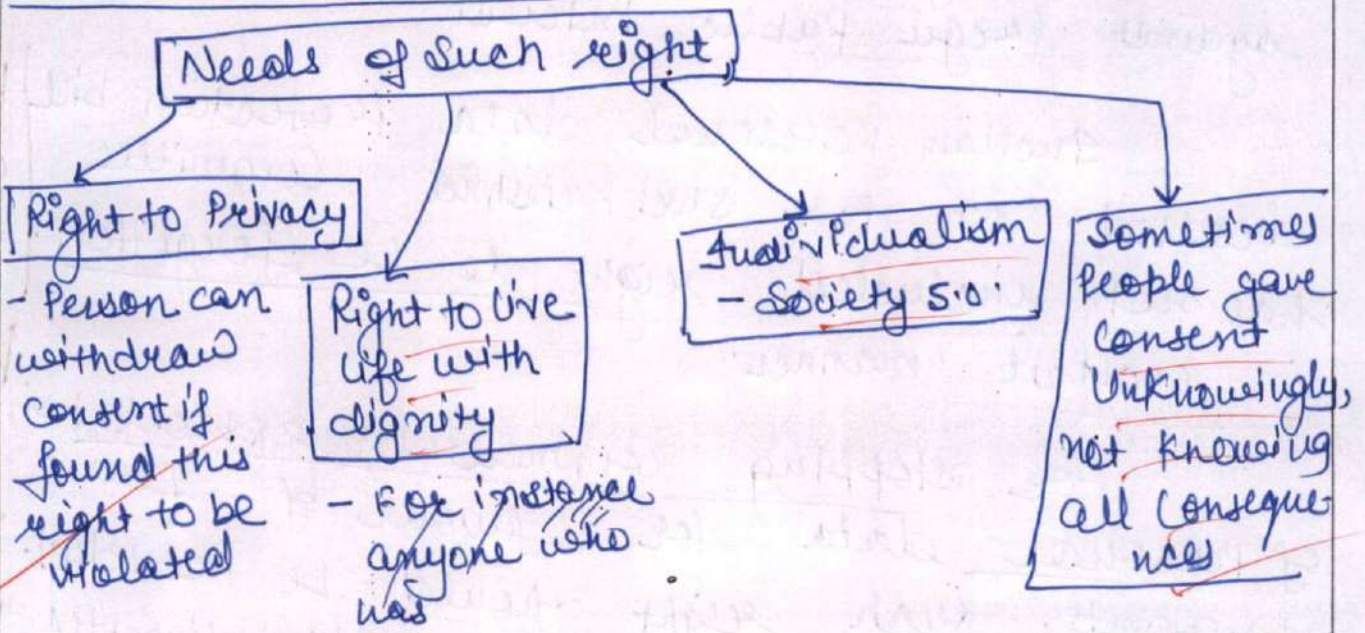 Needs of Such right
Right to Privacy
- Person can
withdraw
consent if
found this
right to be
violated
Right to live
life with
dignity
- For instance
anyone who
has
Individualism
- Society 5.0
Sometimes
People gave
consent
Unknowingly,
not knowing
all Conseque-
nces